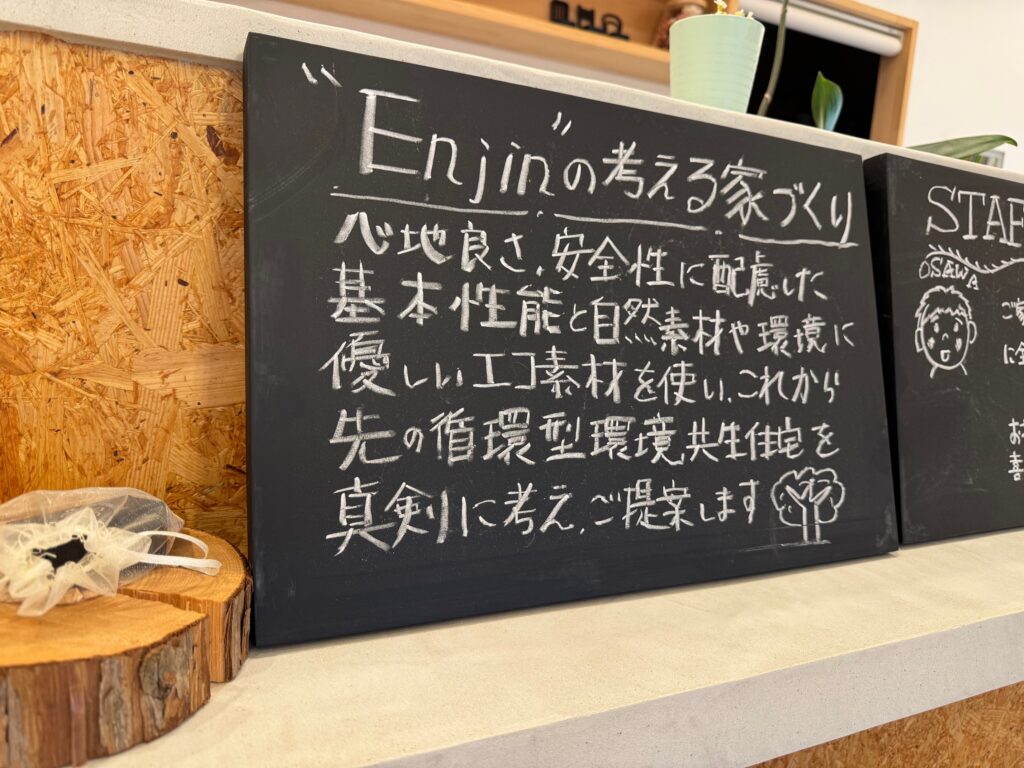 "Enjin"の考える家づくり
心地良さ、安全性に配慮した
基本性能と自然素材や環境に
優しいエコ素材を使い、これから
先の循環型環境共生住宅を
真剣に考え、ご提案します
STAF
OSAWA
ご家
に全
お
喜